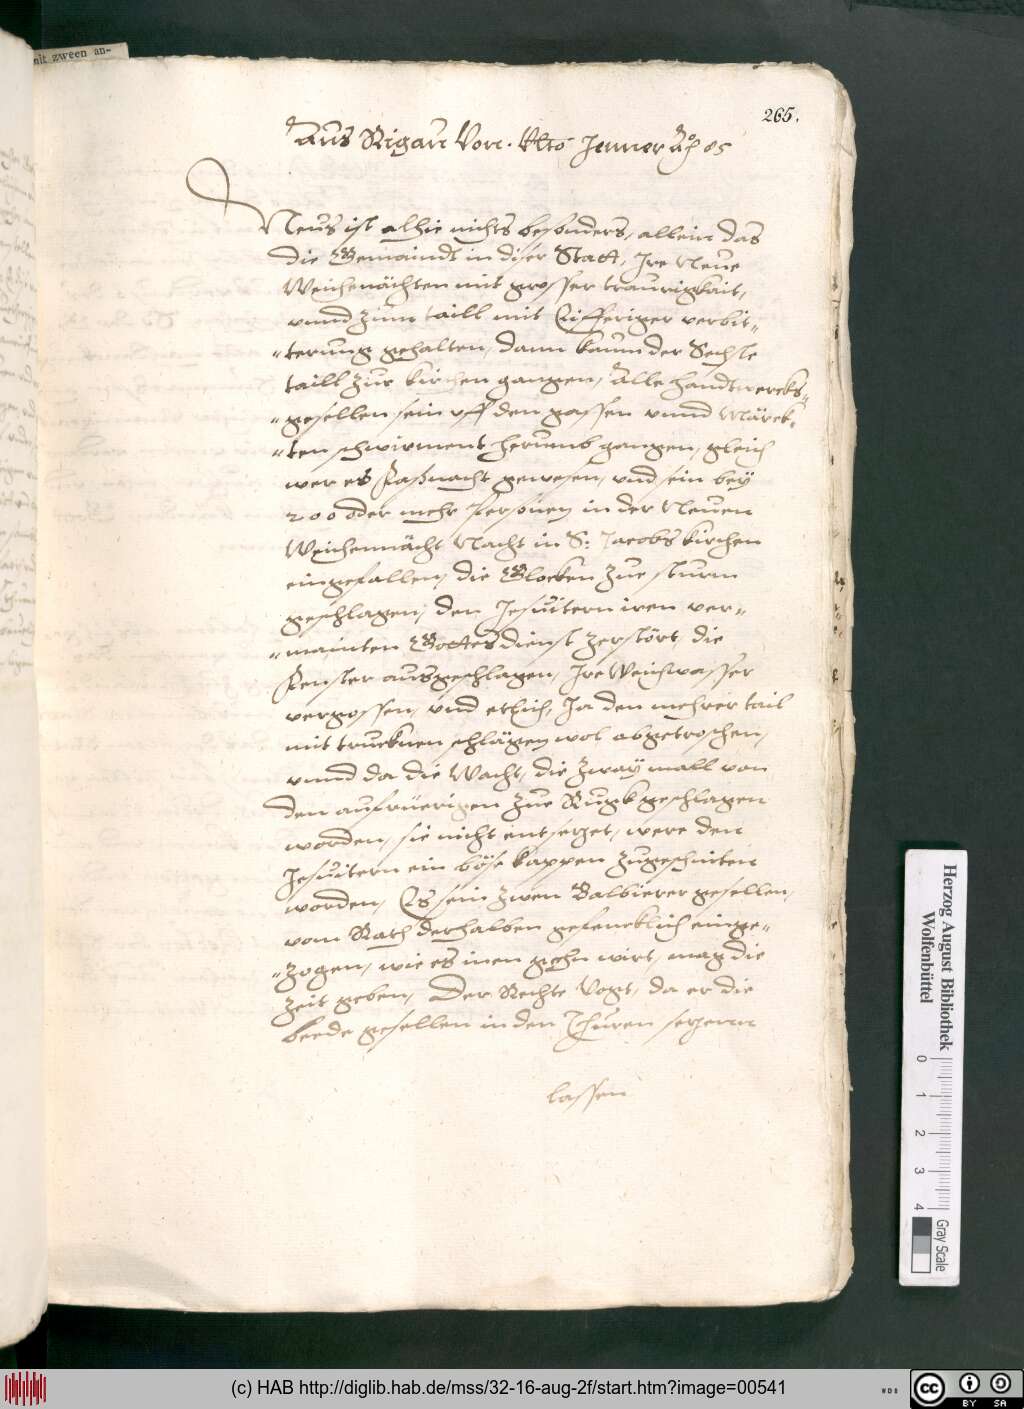 mit zween an-
265.
Aus Rigau Vom Jenner Ao 85
Neus ist alhie nichts besonders, allein das
die Gemaindt in diser Statt, Ire Neue
Weichenächten mit grosser traurigkait,
vnnd zum taill mit Eifferiger verbit„
„terung gehalten, dann kaum der Sechste
taill zur kirchen gangen, Alle Handtwercks„
„gesellen sein vff den gassen vnnd Märck„
„ten schwirment herumb gangen, gleich
wer es Faßnacht gewesen, vnd sein bey
200 oder mehr Personen in der Neuen
Weichennächt Nacht in S: Jacobs kirchen
eingefallen, die Glocken zue sturm
geschlagen, den Jesuitern iren ver„
„mainten Gottesdienst zerstört, die
Fenster ausgeschlagen, Ire Weichwasser
vergossen, vnd etlich, Ja den mehrer tail
mit trucknen schlägen wol abgetroschen,
vnnd da die Wacht, die zway mall von
den aufrüerigen zue Rugk geschlagen
worden, sie nicht entsetzet, were den
Jesuitern ein böse kappen zugeschniten
worden, Es sein zwen Balbierer gesellen,
vom Rath derhalben gefencklich einge„
„zogen, wie es inen gehn wirt, mag die
Zeit geben, Der Rechte Vogt, da er die
beede gesellen in den Thuren setzenn
lassen
Herzog August Bibliothek
Wolfenbüttel
0 1 2 3 4
Gray Scale
(c) HAB http://diglib.hab.de/mss/32-16-aug-2f/start.htm?image=00541
WDB
cc BY SA